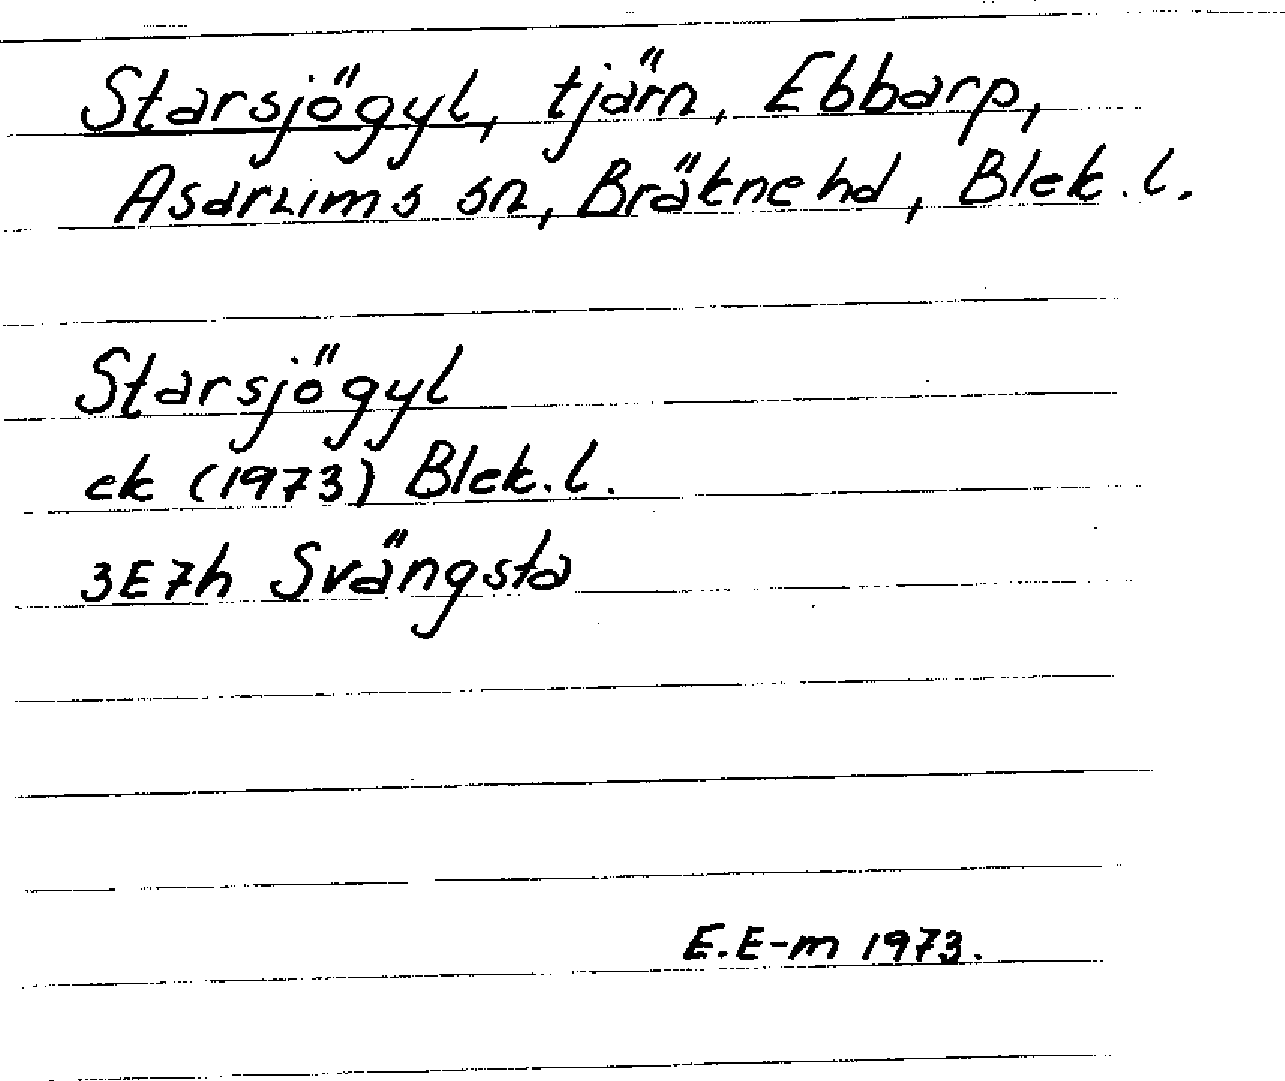 Starsjögyl, tjärn, Ebbarp,
Asarums sn, Bräkne hd, Blek. l.
Starsjögyl
ek (1973) Blek. l.
3E7h Svängsta
E. E-m 1973.